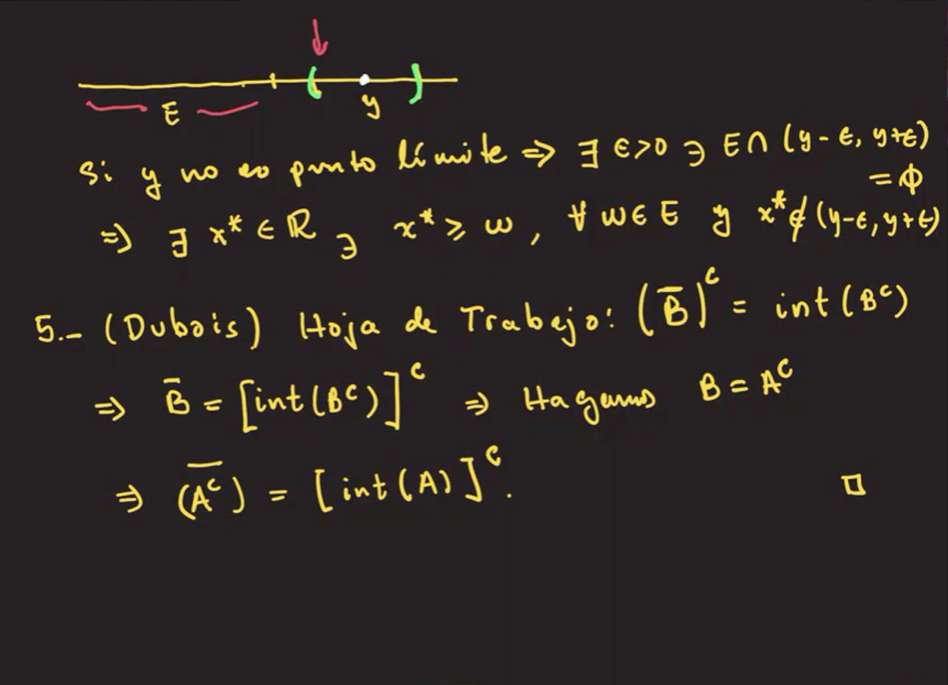 E
y
Si y no es punto límite ⇒ ∃ ε>0 ∋ E∩(y-ε, y+ε) = Φ
⇒ ∃ x* ∈ ℝ ∋ x* ≥ w, ∀ w ∈ E y x* ∉ (y-ε, y+ε)
5.- (Dubois) Hoja de Trabajo: (B̄)ᶜ = int(Bᶜ)
⇒ B̄ = [int(Bᶜ)]ᶜ ⇒ Hagamos B = Aᶜ
⇒ \overline{(Aᶜ)} = [int(A)]ᶜ. □